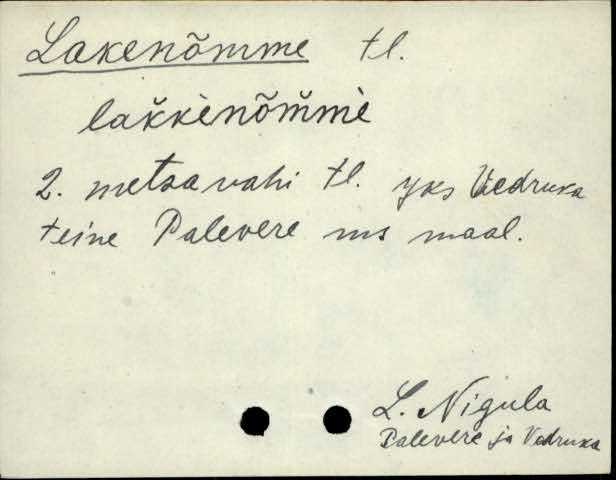 Lakenõmme tl.
lak̆kènõm̆mè
2. metsavahi tl. yks Vedruka
teine Palevere ms maal.
L. Nigula
Palevere ja Vedruka